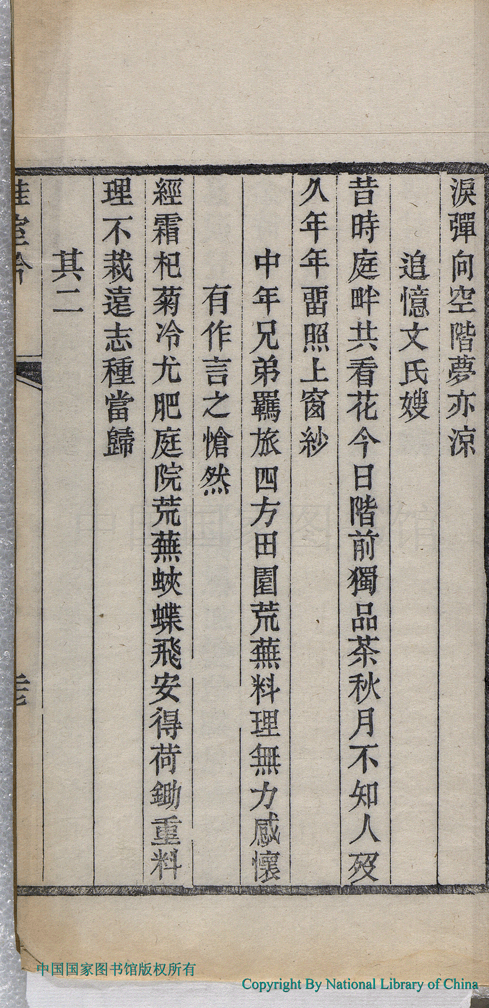 淚彈向空階夢亦涼
追憶文氏嫂
昔時庭畔共看花今日階前獨品茶秋月不知人歿
久年年畱照上窗紗
中年兄弟羈旅四方田園荒蕪料理無力感懷
有作言之愴然
經霜杞菊冷尤肥庭院荒蕪蛺蝶飛安得荷鋤重料
理不栽遠志種當歸
其二
中国国家图书馆版权所有
Copyright By National Library of China